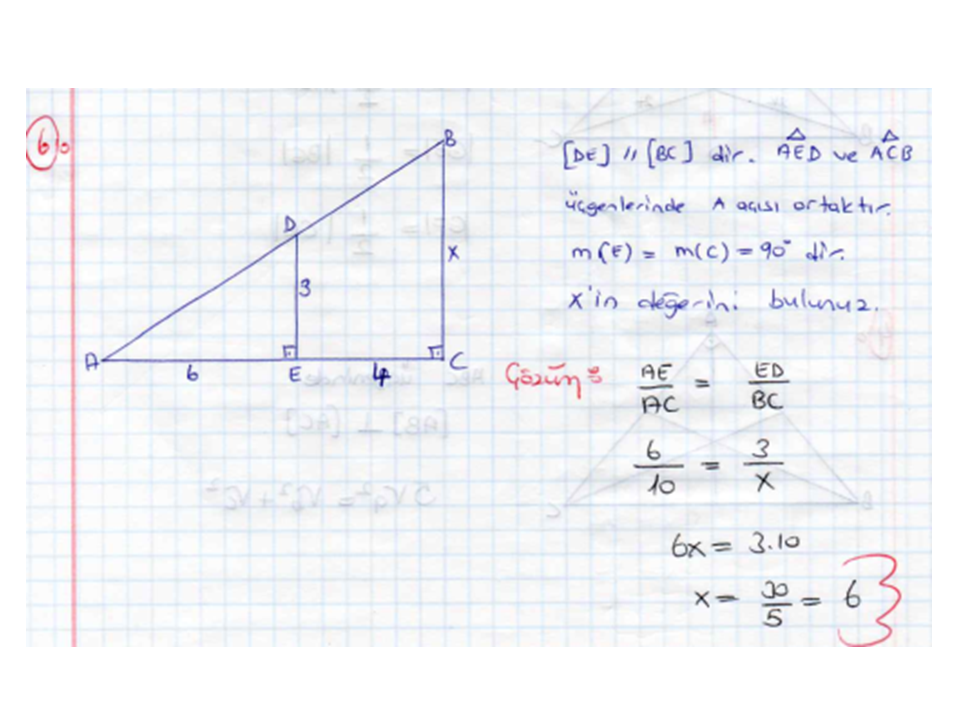 6.
B
D
3
x
A
6
E
4
C
[DE] // [BC] dir. AED ve ACB
üçgenlerinde A açısı ortaktır.
m(E) = m(C) = 90° dir.
x'in değerini bulunuz.
Çözüm:
AE/AC = ED/BC
6/10 = 3/x
6x = 3.10
x = 30/5 = 6